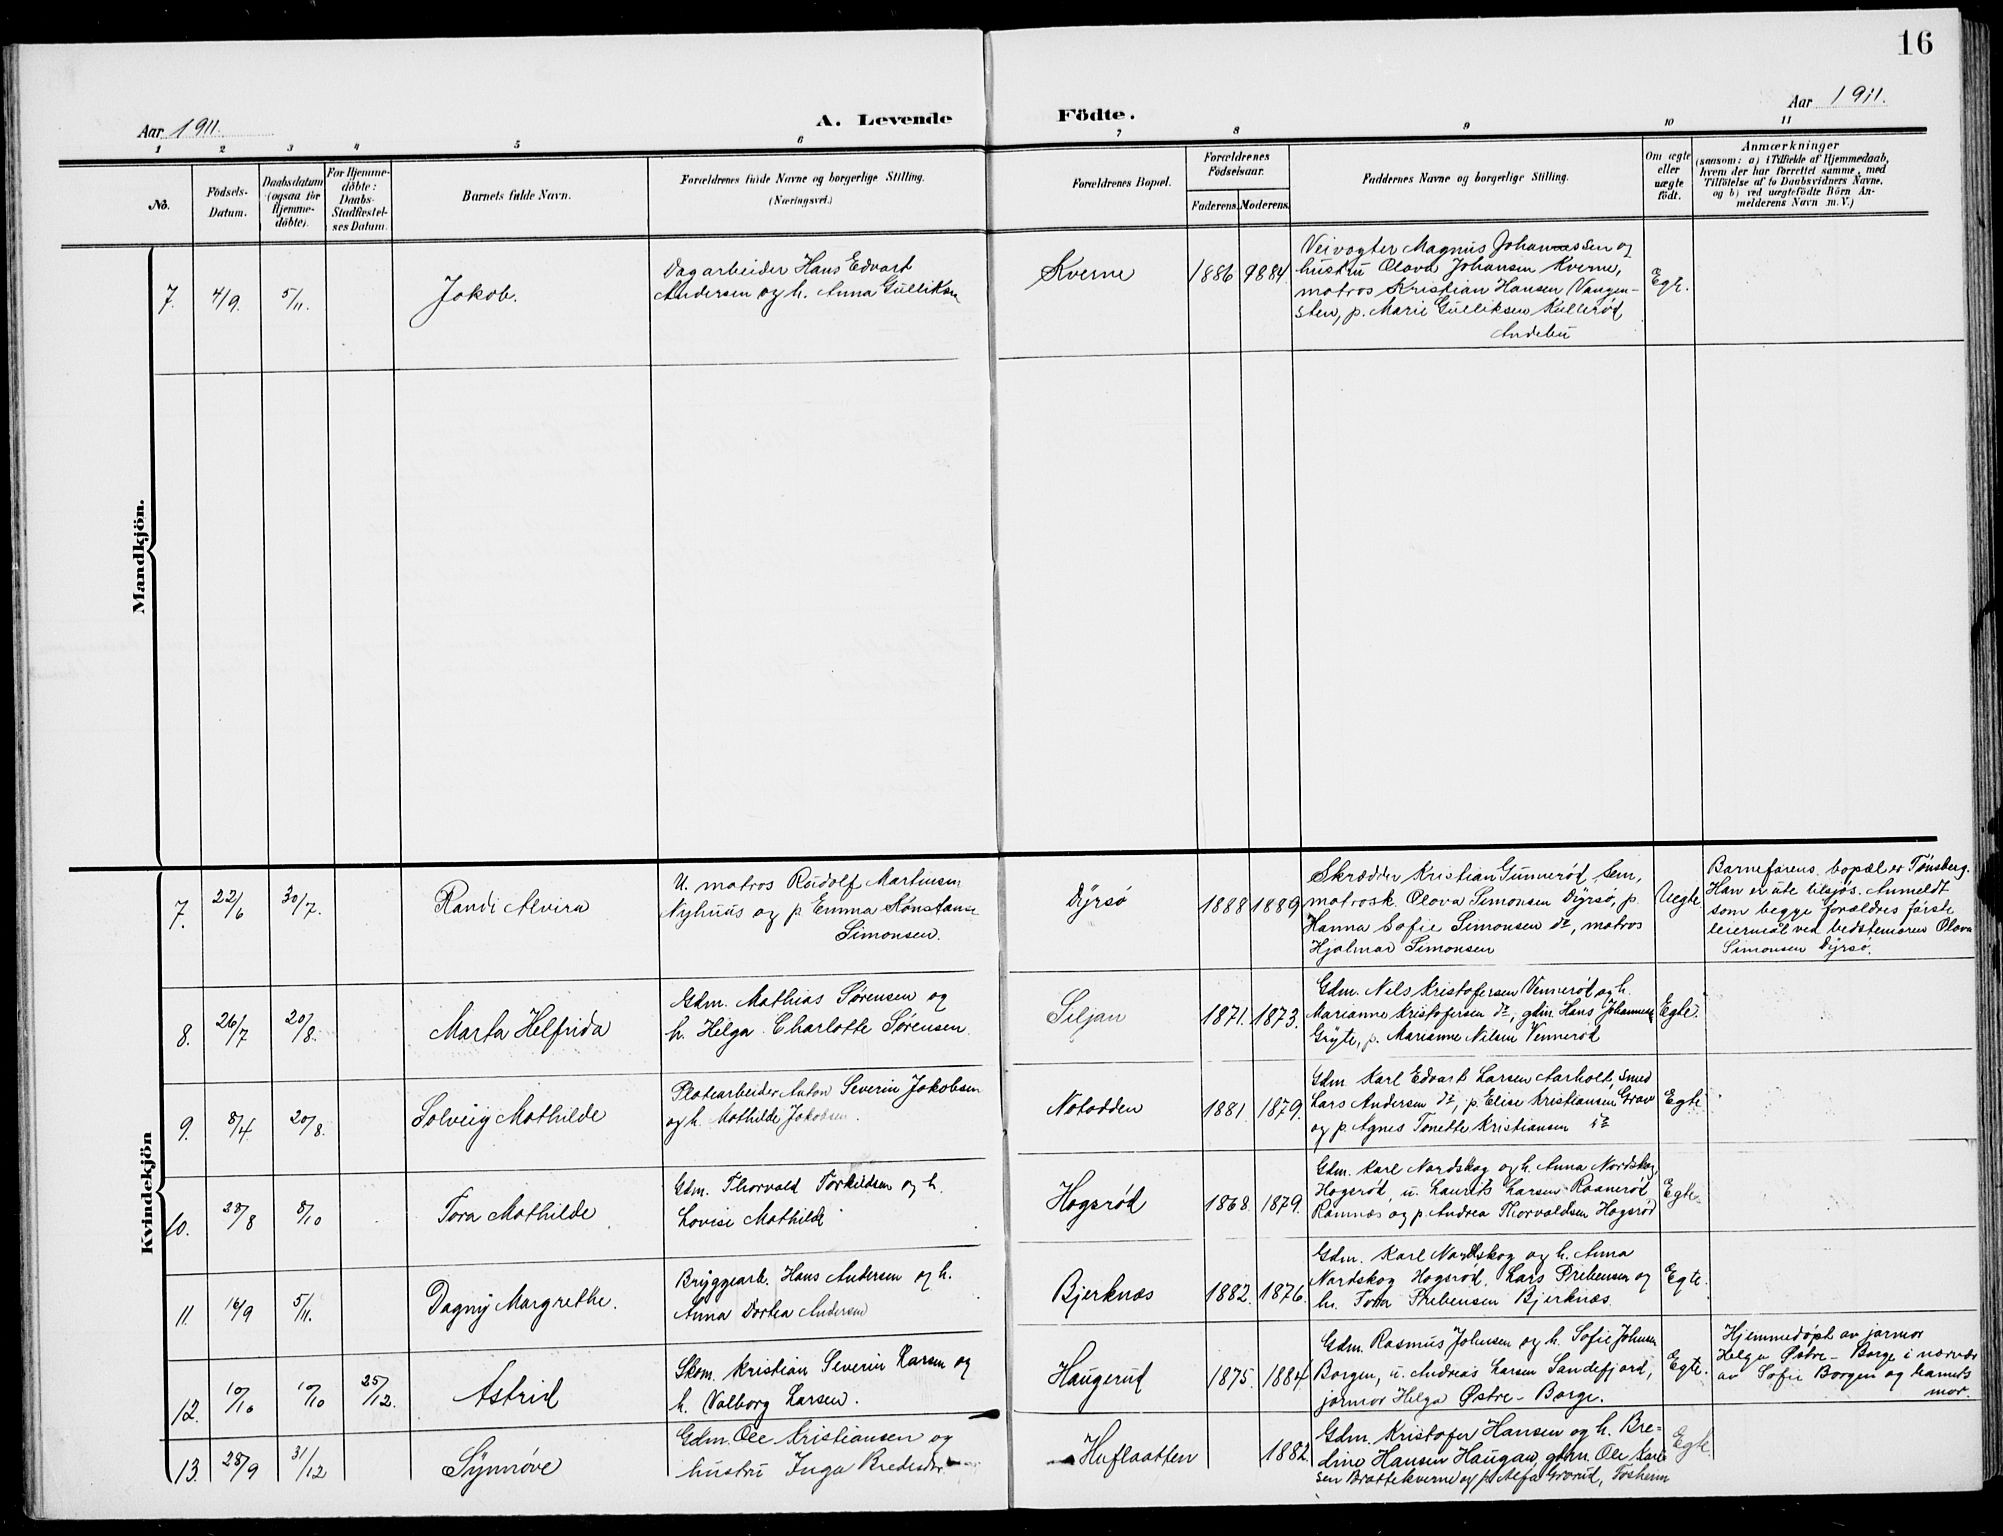 16
Aar 1911.
A. Levende
Födte.
Aar 1911.
1 2 3 4 5 6 7 8 9 10 11
No.
Födsels-
Datum.
Daabsdatum
(ogsaa for
Hjemme-
døbte).
For Hjemme-
døbte:
Daabs-
Stadfæstel-
ses Datum.
Barnets fulde Navn.
Forældrenes fulde Navne og borgerlige Stilling.
(Næringsvei.)
Forældrenes Bopæl.
Forældrenes
Födselsaar.
Faderens.
Moderens.
Faddernes Navne og borgerlige Stilling.
Om ægte
eller
uægte
födt.
Anmærkninger
(saasom: a) i Tilfælde af Hjemmedaab,
hvem der har forrettet samme, med
Tilføielse af to Daabsvidners Navne,
og b) ved uægtefödte Börn An-
melderens Navn m. V.)
Mandkjön.
7. 4/9. 5/11.
Jokob.
Dagarbeider Hans Edvart
Andersen og h. Anna Gulliksen
Kverne
1886 1884.
Veivogter Magnus Johannessen og
hustru Olava Johansen Kverne,
matros Kristian Hansen Vangen-
sten, p. Marie Gulliksen Kullerød
Andebu
Egte.
Kvindekjön
7. 22/6 30/7.
Randi Alvira
U. matros Rudolf Martinsen
Nyhuus og p. Emma Konstanse
Simonsen.
Dyrsø
1888 1889
Skrædder Kristian Gunnerød Sem,
matrosk. Olava Simonsen Dyrsø, p.
Hanna Sofie Simonsen do, matros
Hjalmar Simonsen
Uegte
Barnefarens bopæl er Tønsberg.
Han er ute tilsjøs. Anmeldt
som begge forældres første
leiermål ved bedstemoren Olava
Simonsen Dyrsø.
8. 26/7 20/8.
Marta Helfrida
Gdm. Mathias Sørensen og
h. Helga Charlotte Sørensen
Siljan
1871. 1873.
Gdm. Nils Kristofersen Vennerød og h.
Marianne Kristofersen do, gdm. Hans Johannesen
Gryte, p. Marianne Nilsen Vennerød
Egte.
9. 8/4 20/8.
Solveig Mathilde
Platearbeider Anton Severin Jakobsen
og h. Mathilde Jakobsen.
Notodden
1881. 1879.
Gdm. Karl Edvart Larsen Aarholt, smed
Lars Andersen do, p. Elise Kristiansen Grav
og p. Agnes Tonette Kristiansen do
Egte
10. 28/8 8/10
Tora Mathilde
Gdm. Thorvald Torkildsen og h.
Lovise Mathilde
Hogsrød
1868. 1879.
Gdm. Karl Nordskog og h. Anna Nordskog
Hogsrød, u. Laurits Larsen Raanerød
Ramnæs og p. Andrea Thorvaldsen Hogsrød
Egte.
11. 16/9 5/11.
Dagny Margrethe.
Bryggearb. Hans Andersen og h.
Anna Dortea Andersen
Bjerknæs
1882. 1876.
Gdm. Karl Nordskog og h. Anna
Nordskog Hogsrød, Lars Prebensen og
h. Tora Prebensen Bjerknæs.
Egte.
12. 10/10 10/10 25/12.
Astrid
Skom. Kristian Severin Larsen og
h. Valborg Larsen.
Haugerud
1875. 1884
Gdm. Rasmus Johnsen og h. Sofie Johnsen
Borgen, u. Andreas Larsen Sandefjord,
jormor Helga Østre-Borge.
Egte.
Hjemmedøpt av jormor
Helga Østre-Borge i nærvær
av Sofie Borgen og barnets
mor.
13. 28/9 31/12
Synnøve
Gdm. Ole Kristiansen og
hustru Inga
Huflaatten
1882.
Gdm. Kristofer Hansen og h. Bre-
dine Hansen Haugan, gdm. Ole Kari-
sen Brattekverne og p. Alfa Grorud, Fosherm
Egte.